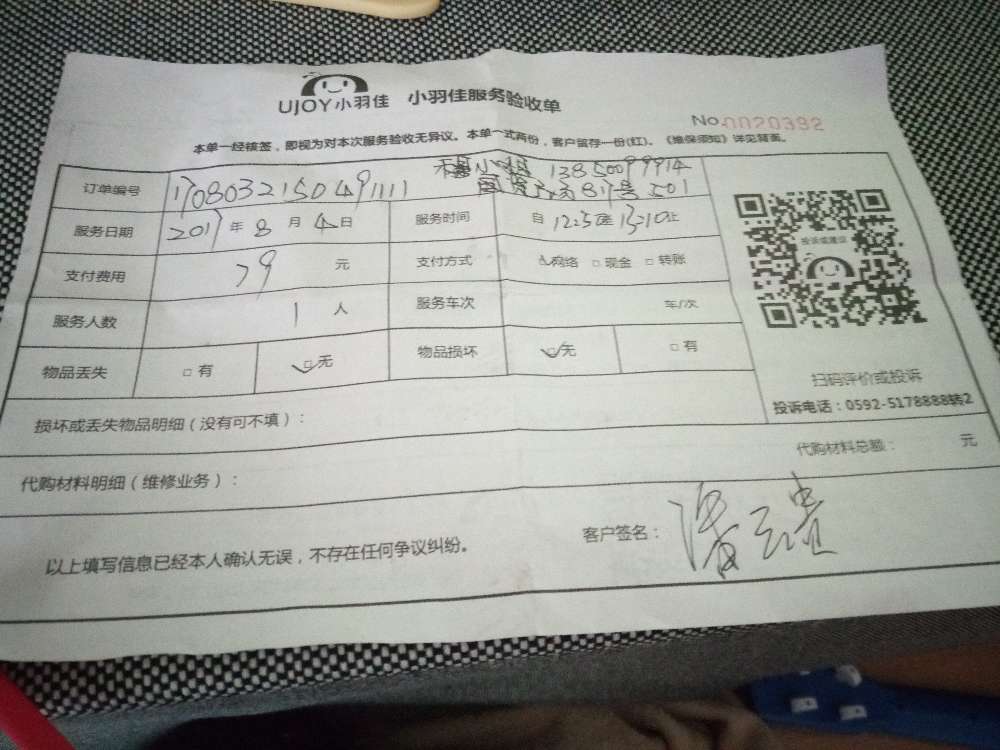 UJOY小羽佳 小羽佳服务验收单
No.0020392
本单一经核签，即视为对本次服务验收无异议。本单一式两份，客户留存一份(红)。《维保须知》详见背面。
订单编号 1708032150491111 13850099914
817号501
服务日期 2017年8月4日 服务时间 自 至13:10止
支付费用 79 元 支付方式 网络 □现金 □转账
服务人数 1 人 服务车次 车/次
物品丢失 □有 □无 物品损坏 □无 □有
投诉或建议
扫码评价或投诉
投诉电话：0592-5178888转2
损坏或丢失物品明细（没有可不填）：
代购材料明细（维修业务）： 代购材料总额： 元
以上填写信息已经本人确认无误，不存在任何争议纠纷。 客户签名：